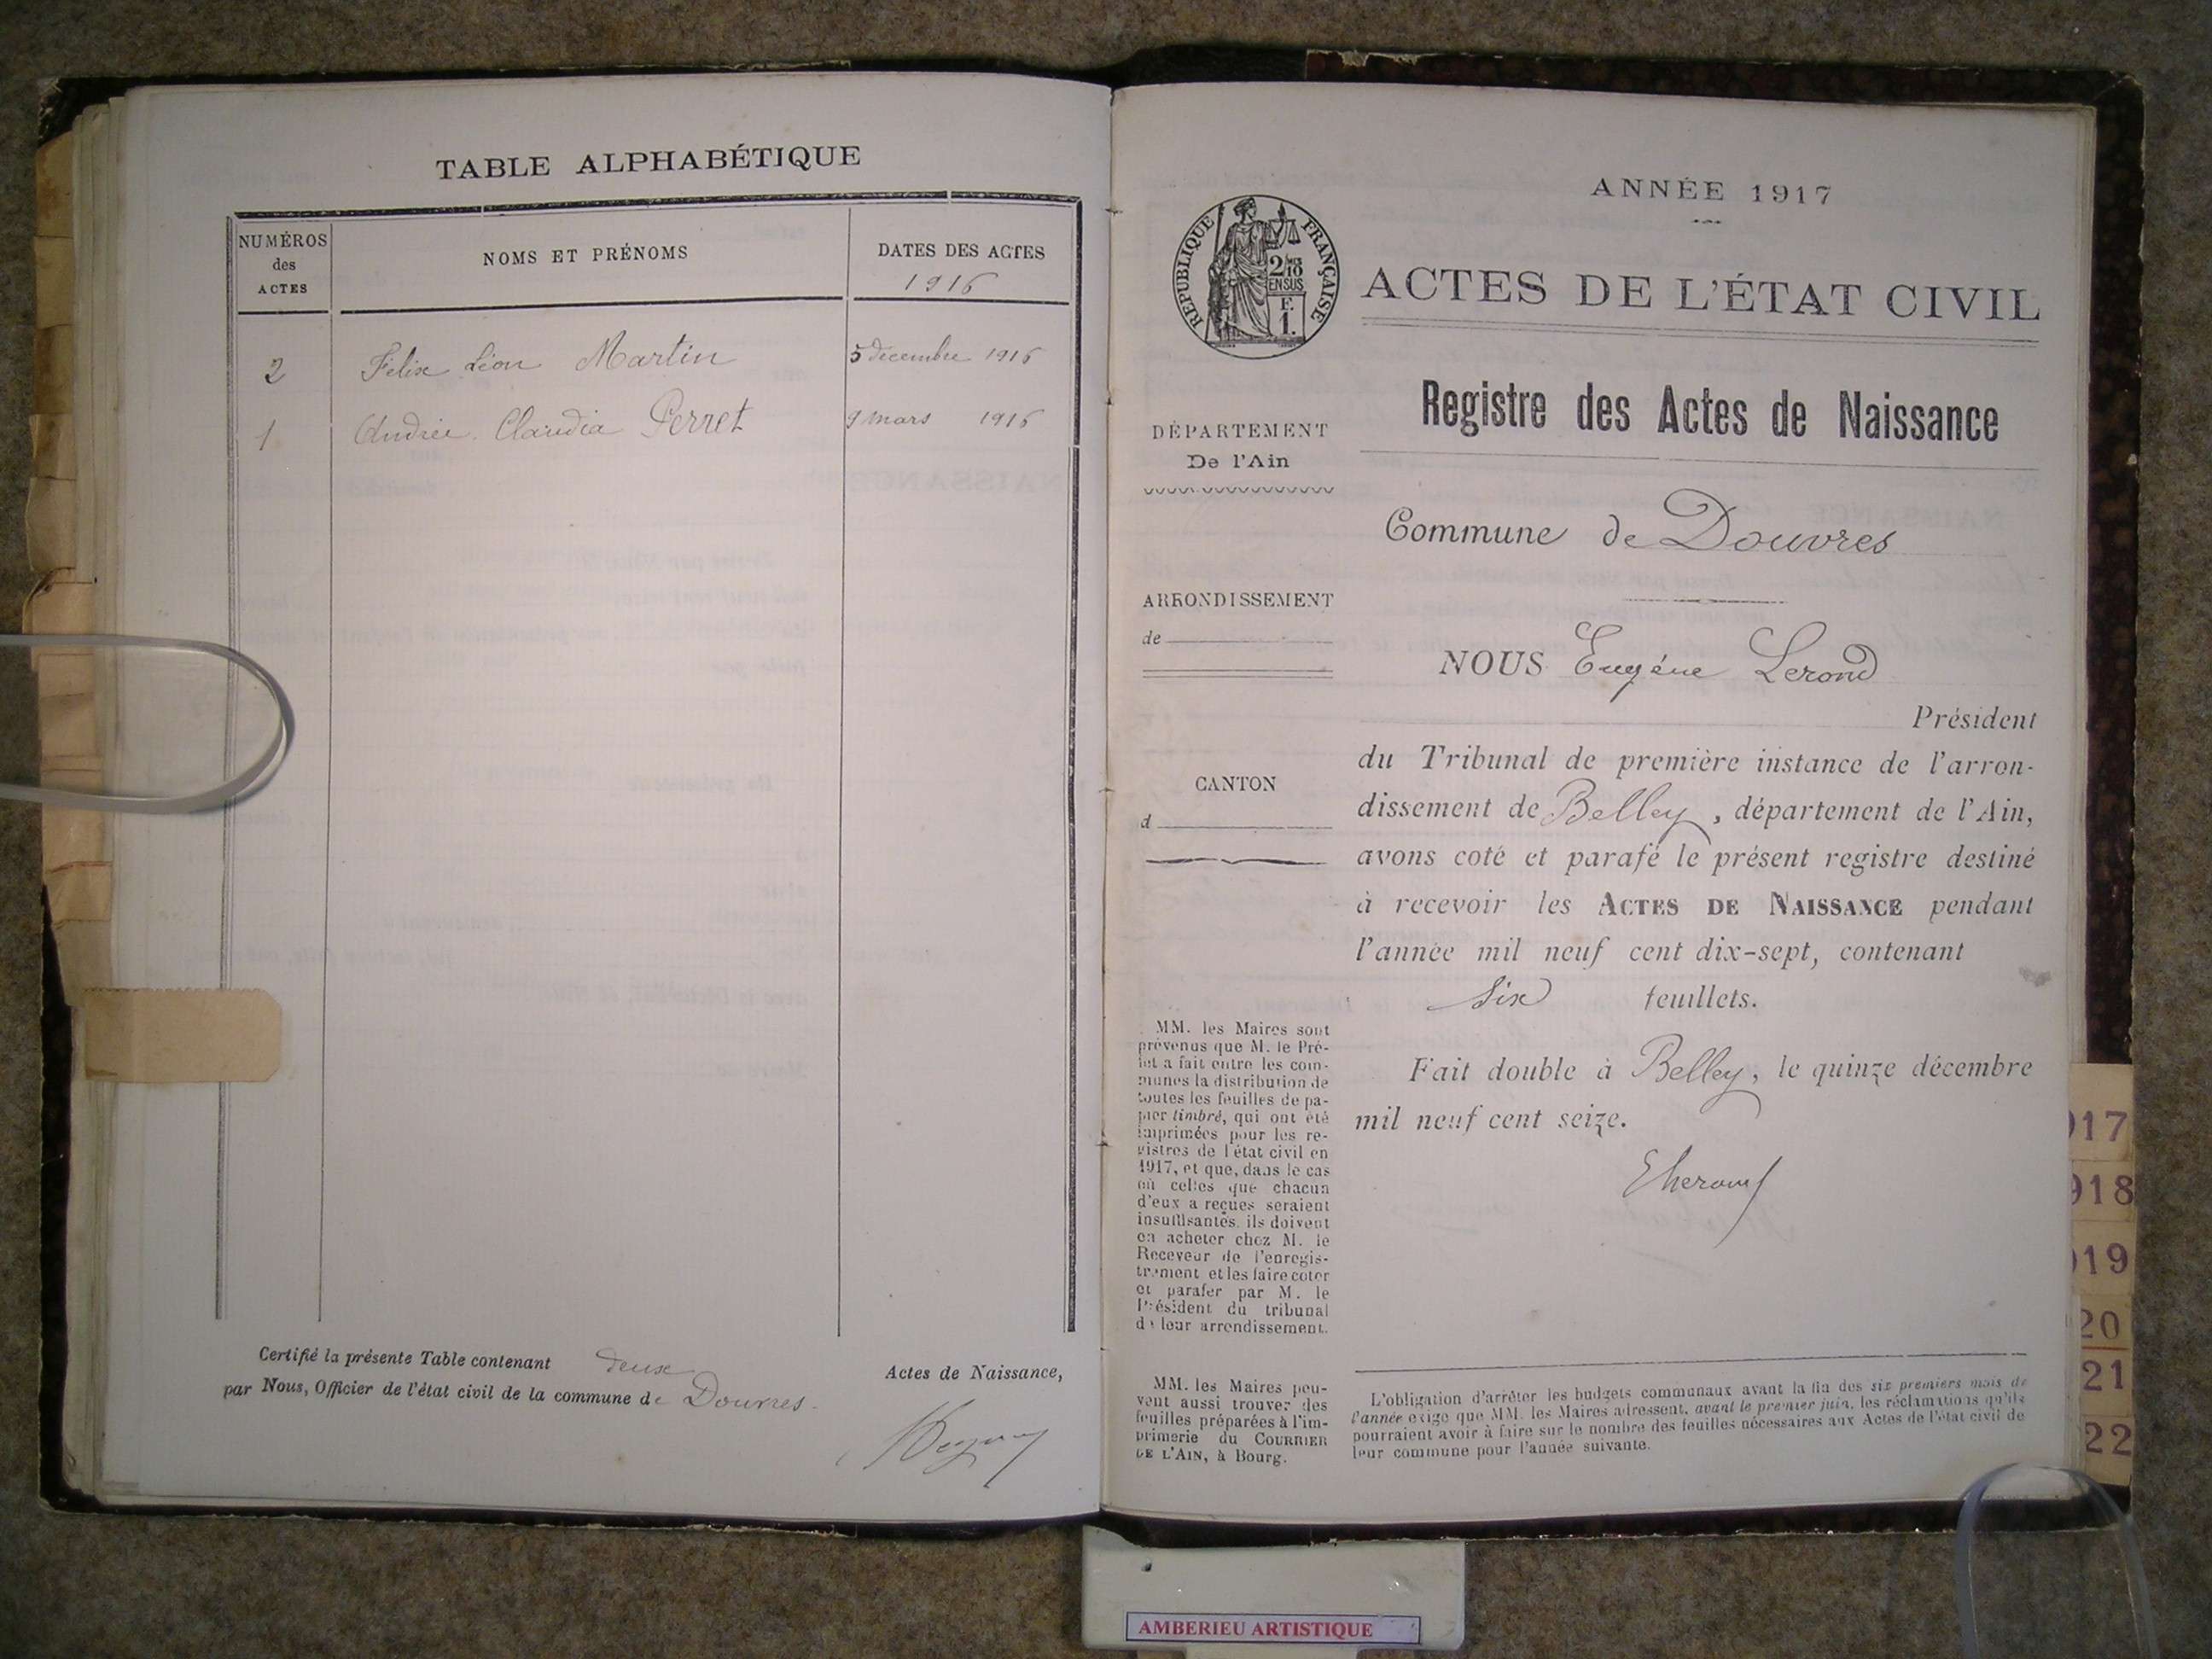 TABLE ALPHABÉTIQUE
NUMÉROS
des
ACTES
NOMS ET PRÉNOMS
DATES DES ACTES
1916
2 Félix Léon Martin 5 décembre 1916
1 Andrée Claudia Perret 9 mars 1916
Certifié la présente Table contenant deux Actes de Naissance,
par Nous, Officier de l'état civil de la commune de Douvres.
ANNÉE 1917
RÉPUBLIQUE FRANÇAISE
2/10
EN SUS
F.
1.
ACTES DE L'ÉTAT CIVIL
Registre des Actes de Naissance
DÉPARTEMENT
De l'Ain
Commune de Douvres
ARRONDISSEMENT
de
NOUS Eugène Lerond
Président
du Tribunal de première instance de l'arron-
dissement de Belley, département de l'Ain,
avons coté et parafé le présent registre destiné
à recevoir les ACTES DE NAISSANCE pendant
l'année mil neuf cent dix-sept, contenant
six feuillets.
Fait double à Belley, le quinze décembre
mil neuf cent seize.
CANTON
d
MM. les Maires sont
prévenus que M. le Pré-
fet a fait entre les com-
munes la distribution de
toutes les feuilles de pa-
pier timbré, qui ont été
imprimées pour les re-
gistres de l'état civil en
1917, et que, dans le cas
où celles que chacun
d'eux a reçues seraient
insuffisantes, ils doivent
en acheter chez M. le
Receveur de l'enregis-
trement et les faire coter
et parafer par M. le
Président du tribunal
de leur arrondissement.
MM. les Maires peu-
vent aussi trouver des
feuilles préparées à l'im-
primerie du COURRIER
DE L'AIN, à Bourg.
L'obligation d'arrêter les budgets communaux avant la fin des six premiers mois de
l'année exige que MM. les Maires adressent, avant le premier juin, les réclamations qu'ils
pourraient avoir à faire sur le nombre des feuilles nécessaires aux Actes de l'état civil de
leur commune pour l'année suivante.
17
918
19
20
21
22
AMBERIEU ARTISTIQUE